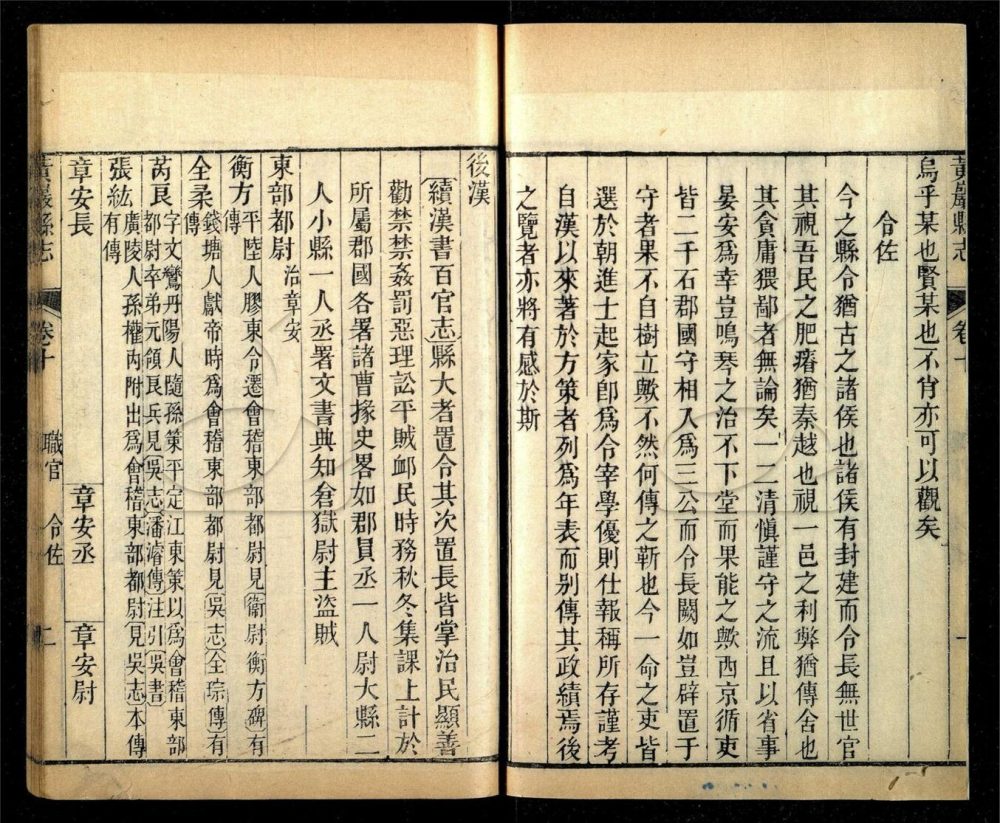 黃巖縣志 卷十 一
烏乎某也賢某也不肖亦可以觀矣
令佐
今之縣令猶古之諸侯也諸侯有封建而令長無世官
其視吾民之肥瘠猶秦越也視一邑之利弊猶傳舍也
其貪庸猥鄙者無論矣一二清愼謹守之流且以省事
晏安爲幸豈鳴琴之治不下堂而果能之歟西京循吏
皆二千石郡國守相入爲三公而令長闕如豈辟置于
守者果不自樹立歟不然何傳之靳也今一命之吏皆
選於朝進士起家卽爲令宰學優則仕報稱所存謹考
自漢以來著於方策者列爲年表而別傳其政績焉後
之覽者亦將有感於斯
後漢
續漢書百官志縣大者置令其次置長皆掌治民顯善
勸禁禁姦罰惡理訟平賊卹民時務秋冬集課上計於
所屬郡國各署諸曹掾史畧如郡員丞一人尉大縣二
人小縣一人丞署文書典知倉獄尉主盜賊
東部都尉 治章安
衡方 平陸人膠東令遷會稽東部都尉見衞尉衡方碑有
傳
全柔 錢塘人獻帝時爲會稽東部都尉見吳志全琮傳有
傳
芮良 字文鸞丹陽人隨孫策平定江東策以爲會稽東部
都尉卒弟元領良兵見吳志潘濬傳注引吳書
張紘 廣陵人孫權內附出爲會稽東部都尉見吳志本傳
有傳
章安長 章安丞 章安尉
黃巖縣志 卷十 職官 令佐 二